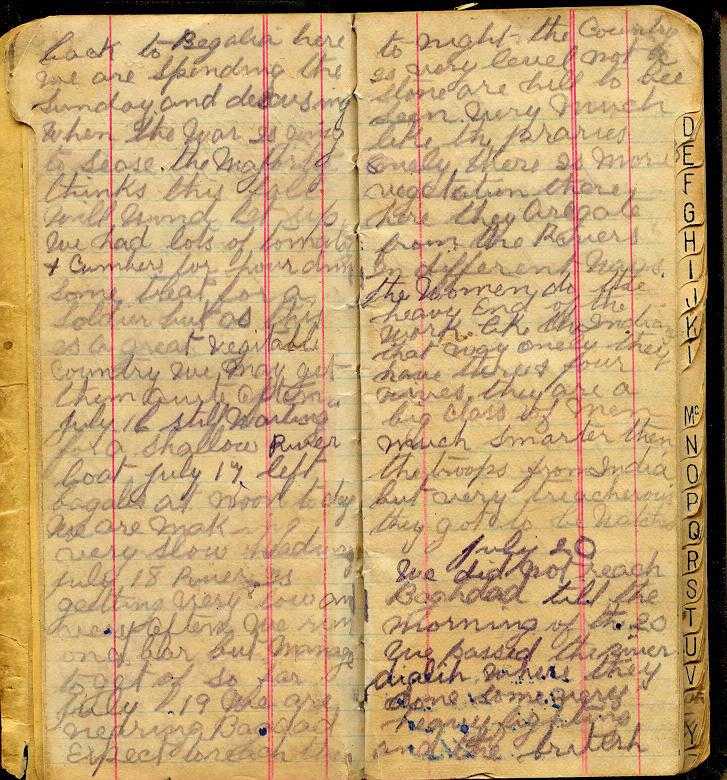 back to Begalia here
we are spending the
Sunday and
When the War is
to sease the
thinks this
will
we had lots of tomato
+ for
Some treat for a
Soldier but as this
is a great vegitable
Country we may get
them quite often
July 16 still Waiting
for a Shallow River
boat July 17 left
at noon to day
We are mak
very slow
July 18 River is
getting very low
very often We run
on a bar but Manage
to get of so far
July 19 We are
nearing Bagdad
Expect to reach
to night the Country
is very level not a
stone are hill to bee
seen very much
like the praries
onely there is More
vegetation there
here they
from the Rivers
in different Ways
the Women do the
heavy End of the
Work. the
that way onely they
have three four
wives, they are a
big class of Men
Much Smarter then
the troops from India
but very treacherous
they got to be
July 20
We did not reach
Baghdad till the
morning of the 20
We passed the river
where they
done some very
heavy fighting
and the british
D
E
F
G
H
I
J
K
L
Mc
N
O
P
Q
R
S
T
U
V
Y